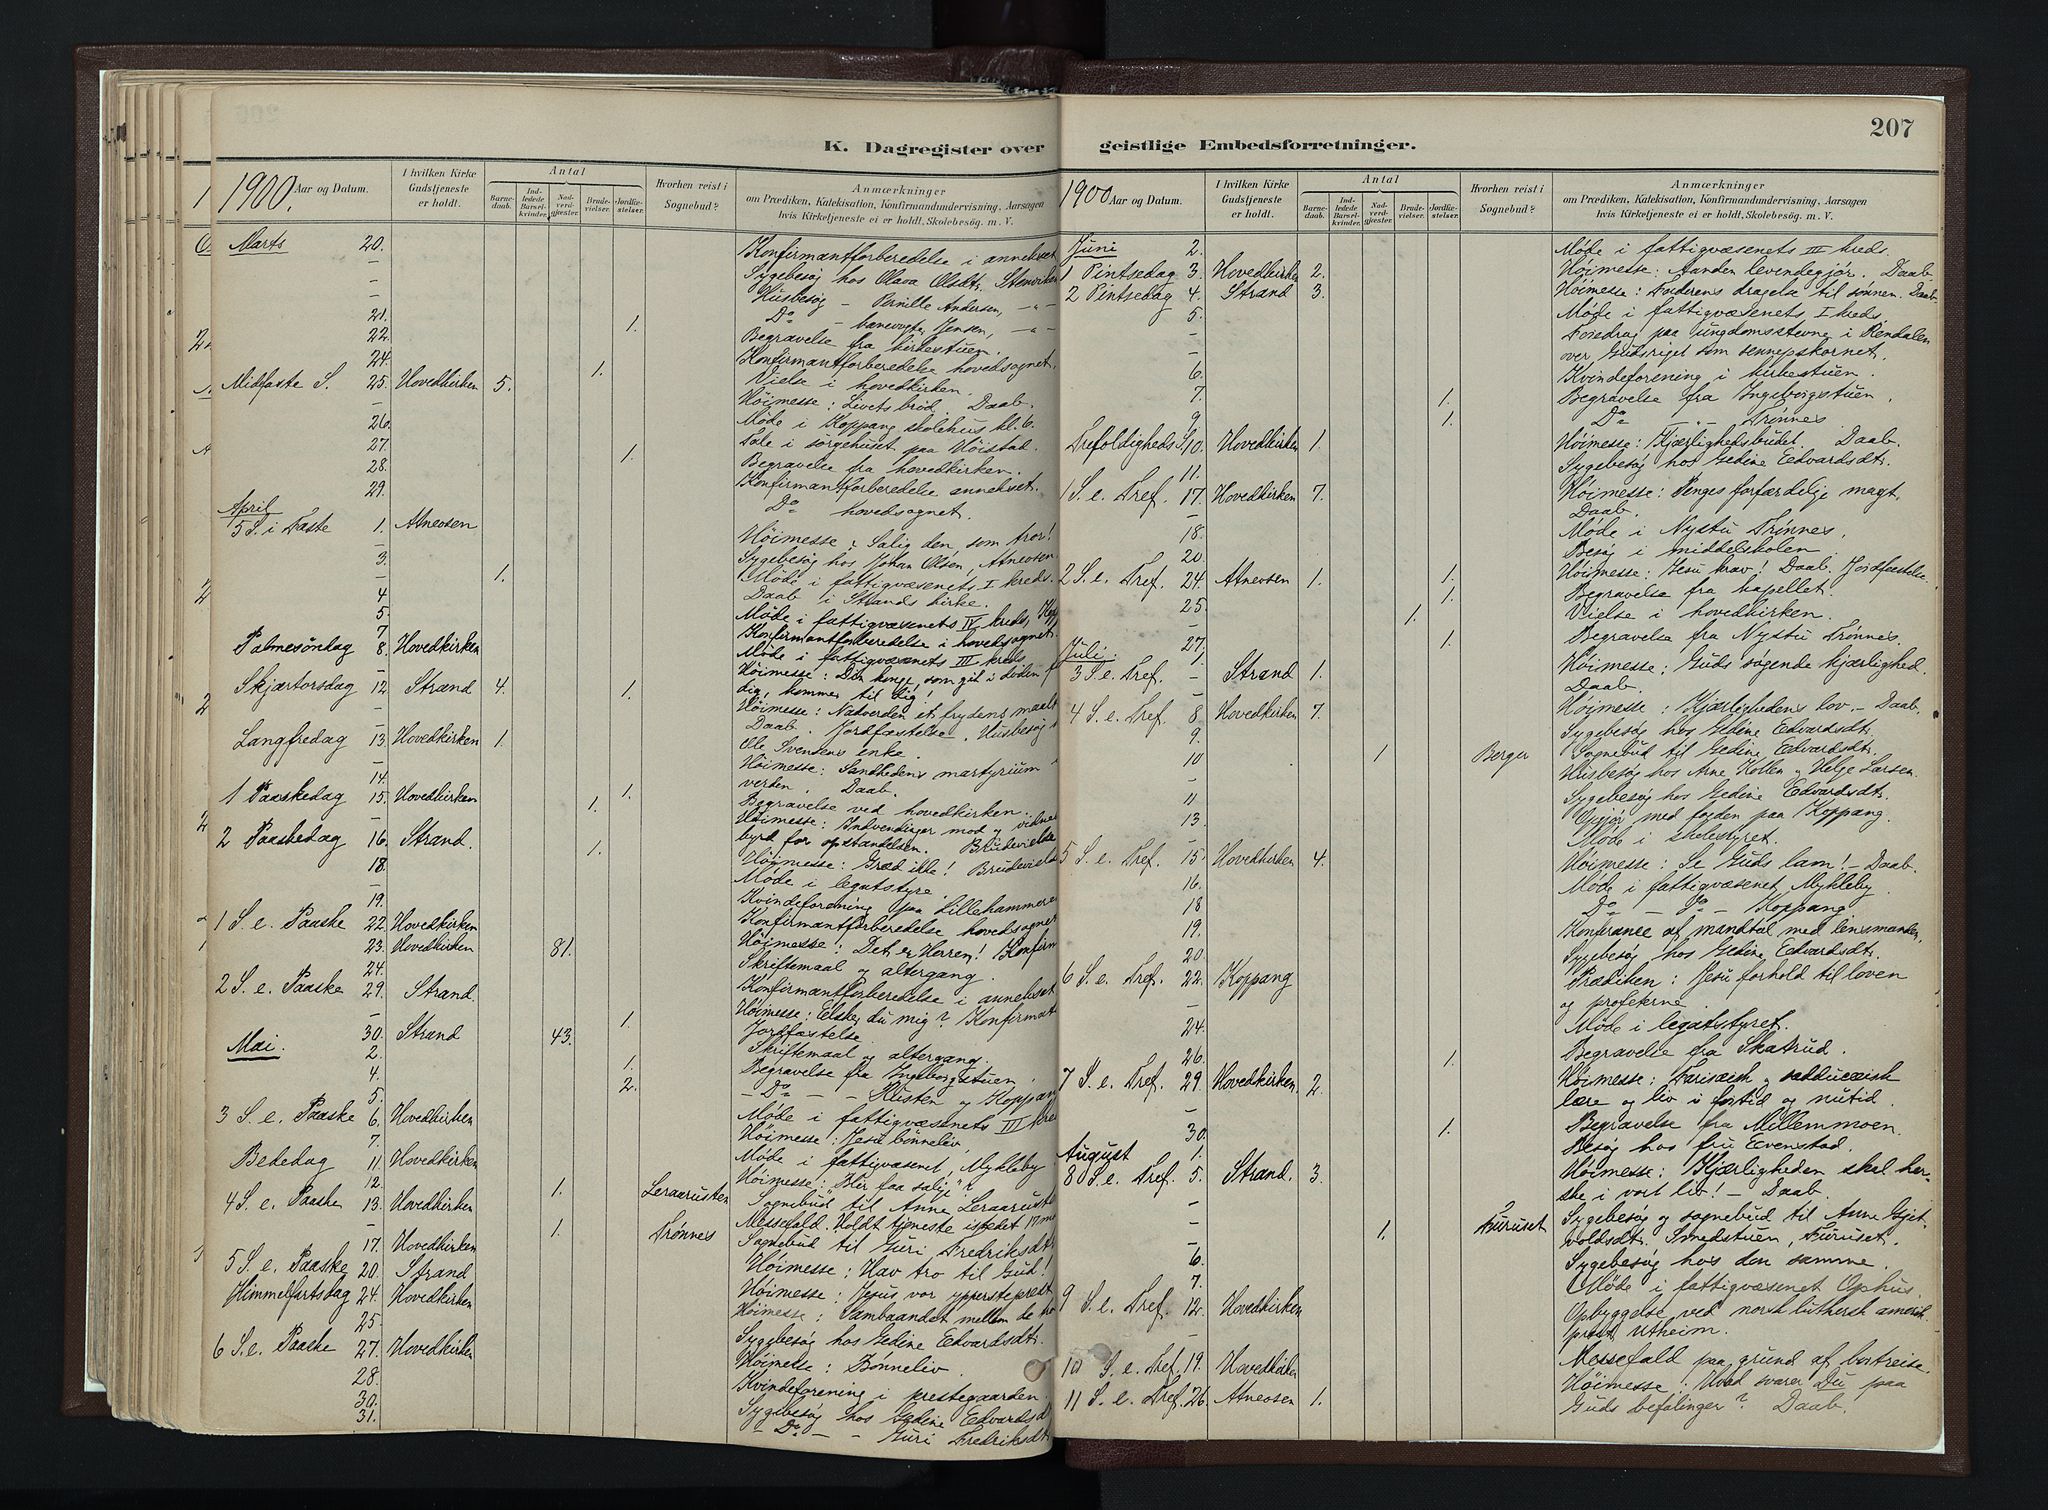 207
K. Dagregister over
geistlige Embedsforretninger.
1900. Aar og Datum.
I hvilken Kirke Gudstjeneste er holdt.
Antal
Barnedaab.
Indledede Barselkvinder.
Nadverdgjester.
Brudevielser.
Jordfæstelser.
Hvorhen reist i Sognebud?
Anmærkninger
om Prædiken, Katekisation, Konfirmandundervisning, Aarsagen
hvis Kirketjeneste ei er holdt, Skolebesøg. m. V.
Marts 20. Konfirmantforberedelse i annekset
– Sygebesøg hos Olava Olsdtr.
– Husbesøg – Pernille Andersen, – " –
– Do – banevogter Jensen, – " –
21. 1. Begravelse fra kirkestuen.
22. Konfirmantforberedelse hovedsognet.
24. 1. Vielse i hovedkirken.
Midfaste S. 25. Hovedkirken 5. Høimesse: Livets brød. Daab.
– Møde i Koppang skolehus kl. 6.
26. Tale i sørgehuset paa Høistad.
27. 1. Begravelse fra hovedkirken.
28. Konfirmantforberedelse annekset.
29. Do hovedsognet.
April
5 S. i Faste 1. Atneosen Høimesse: Salig den som tror!
– Sygebesøg hos Johan Olsen, Atneosen
3. Møde i fattigvæsenets I kreds.
– 1. Daab i Strands kirke.
4 Møde i fattigvæsenets IV kreds
5. Konfirmantforberedelse i hovedsognet.
7 Møde i fattigvæsenets III kreds
Palmesøndag 8. Hovedkirken Høimesse: Din konge, som gik i døden f
dig, kommer til dig!
Skjærtorsdag 12 Strand 4. 1. Høimesse: Nadverden et frydens maalt
– Daab. Jordfæstelse. Husbesøg
Ole Svendsens enke.
Langfredag 13. Hovedkirken 1. Høimesse: Sandhedens martyrium i
verden. Daab.
14. 1. Begravelse ved hovedkirken.
1 Paaskedag 15. Hovedkirken 1. Høimesse: Indvendinger mod og vidnes
byrd for opstandelsen. Brudevielse
2 Paaskedag 16. Strand. 1. Høimesse: Græd ikke! Brudevielse
18. Møde i legatstyre.
– Kvindeforening paa Lillehammer
19. Konfirmantforberedelse hovedsognet
1 S. e. Paaske 22. Hovedkirken Høimesse: Det er Herren! Konfirm
23. Hovedkirken 81. Skriftemaal og altergang.
24. Konfirmantforberedelse i annekset
2 S. e. Paaske 29. Strand. Høimesse: Elsker du mig? Konfirmat
– 1. Jordfæstelse.
30. Strand 43. Skriftemaal og altergang.
Mai. 2. 1. Begravelse fra Ingeborgstuen.
4. 2. – Do – – Rusten og Koppang
5. Møde i fattigvæsenets III kre
3 S. e. Paaske 6. Hovedkirken Høimesse: Jesu bønneliv.
7. Møde i fattigvæsenet, Mykleby
Bededag 11. Hovedkirken Høimesse: Her faa salige?
12. 1. Leraarusten Sognebud til Anne Leraaruste
4 S. e. Paaske 13. Hovedkirken Messefald. Holdt tjeneste istedet 17. mai
– 1. Trønnes Sognebud til Guri Fredriksdtr.
17. Hovedkirken Høimesse: Hav tro til Gud!
5 S. e. Paaske 20. Strand Høimesse: Jesus vor ypperstepræst
Himmelfartsdag 24. Hovedkirken Høimesse: Sambaandet mellem de
25. Sygebesøg hos Gedine Edvardsdtr.
6 S. e. Paaske 27. Hovedkirken Høimesse: Bønneliv.
28. Kvindeforening i prestegaarden.
30. Sygebesøg hos Gedine Edvardsd
31. – Do – – Guri Fredriksdtr.
1900 Aar og Datum.
I hvilken Kirke Gudstjeneste er holdt.
Antal
Barnedaab.
Indledede Barselkvinder.
Nadverdgjester.
Brudevielser.
Jordfæstelser.
Hvorhen reist i Sognebud?
Anmærkninger
om Prædiken, Katekisation, Konfirmandundervisning, Aarsagen
hvis Kirketjeneste ei er holdt, Skolebesøg. m. V.
Juni 2. Møde i fattigvæsenets III kreds.
1 Pintsedag 3. Hovedkirken 2. Høimesse: Aanden levendegjør. Daab
2 Pintsedag 4. Strand 3. Høimesse: Faderens dragelse til sønnen. Daab
5. Møde i fattigvæsenets I kreds.
– Foredrag paa ungdomsstevne i Rendalen
over Gudsriget som sennepskornet.
– Kvindeforening i kirkestuen.
6. 1. Begravelse fra Ingeborgstuen.
7. 1. Do – " – Trønnes
9
Trefoldigheds S. 10. Hovedkirken 1. Høimesse: Kjærlighetsbudet. Daab.
11. Sygebesøg hos Gedine Edvardsdtr.
1 S. e. Tref. 17. Hovedkirken 7. Høimesse: Penges forfærdelige magt.
Daab.
– Møde i Nystu Trønnes.
18. Besøg i middelskolen.
20
2 S. e. Tref. 24 Atneosen 1. 1. Høimesse: Jesu krav! Daab. Jordfæstelse.
– 1. Begravelse fra kapellet.
25. 1. Vielse i hovedkirken.
27. 1. Begravelse fra Nystu Trønnes.
Juli.
3 S. e. Tref. 1. Strand 1. Høimesse: Guds søgende kjærlighed.
Daab.
4 S. e. Tref. 8. Hovedkirken 7. Høimesse: Kjærlighedens lov. – Daab.
9. Sygebesøg hos Gedine Edvardsdtr.
10 1 Berger Sognebud til Gedine Edvardsdtr.
– Husbesøg hos Arne Kollen og Helge Larsen.
11 Sygebesøg hos Gedine Edvardsdtr.
13. Opgjør med fogden paa Koppang.
– Møde i skolestyret.
5 S. e. Tref. 15. Hovedkirken 4. Høimesse: Se Guds lam! – Daab.
16. Møde i fattigvæsenet, Mykleby.
18 Do – Do – Koppang
19. Konferance af mandtal med lensmanden.
20. Sygebesøg hos Gedine Edvardsdtr.
6 S. e. Tref. 22. Koppang Prædiken: Jesu forhold til loven
og profeterne.
24. Møde i legatstyret.
26. 1. Begravelse fra Skatrud.
7 S. e. Tref. 29. Hovedkirken 2. Høimesse: Farisæisk og sadducæisk
lære og liv i fortid og nutid.
30. 1. Begravelse fra Millemmoen.
August 1. Besøg hos fru Evenstad.
8 S. e. Tref. 5. Strand. 3. Høimesse: Kjærligheden skal her-
ske i vort liv! – Daab.
– 1. Furuset Sygebesøg og sognebud til Anne Gjet-
voldsdtr. Smedstuen, Furuset.
6. Sygebesøg hos den samme.
7. Møde i fattigvæsenet Ophus.
9 S. e. Tref. 12. Hovedkirken Opbyggelse ved norsk luthersk amerik.
prest Utheim.
10 S. e. Tref. 19. Hovedkirken Messefald paa grund af bortreise.
11 S. e. Tref. 26. Atneosen 1. Høimesse: Hvad svarer Du paa
Guds befalinger? Daab.